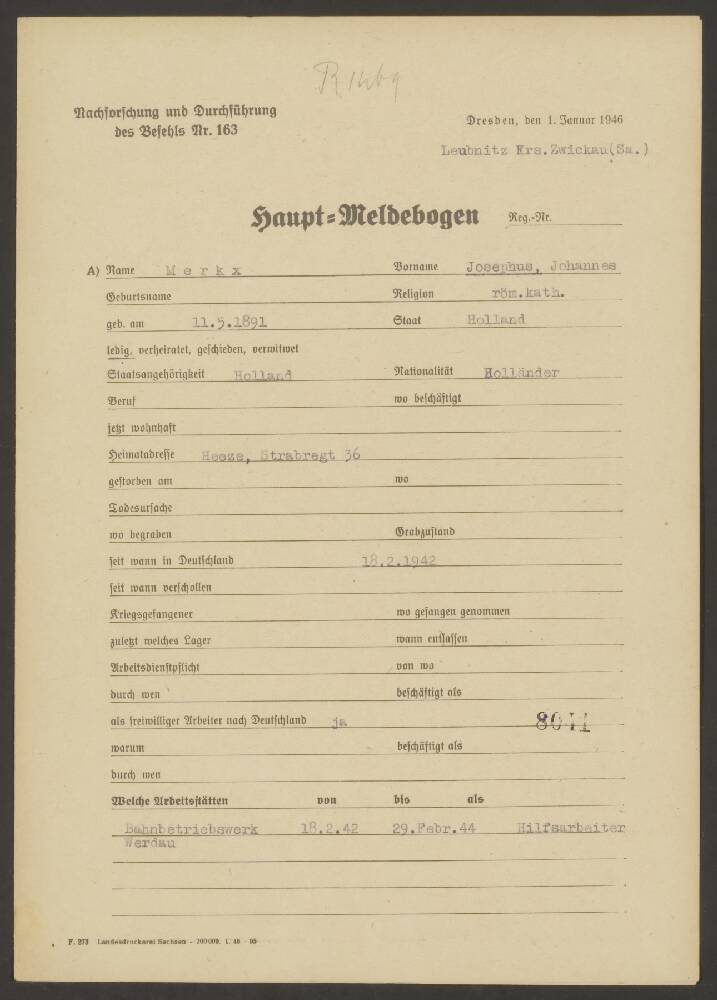 Nachforschung und Durchführung
des Befehls Nr. 163
Dresden, den 1. Januar 1946
Leubnitz Krs. Zwickau(Sa.)
Haupt=Meldebogen Reg.-Nr.
A) Name M e r k x Vorname Josephus, Johannes
Geburtsname Religion röm.kath.
geb. am 11.5.1891 Staat Holland
ledig, verheiratet, geschieden, verwitwet
Staatsangehörigkeit Holland Nationalität Holländer
Beruf wo beschäftigt
jetzt wohnhaft
Heimatadresse Heeze, Strabregt 36
gestorben am wo
Todesursache
wo begraben Grabzustand
seit wann in Deutschland 18.2.1942
seit wann verschollen
Kriegsgefangener wo gefangen genommen
zuletzt welches Lager wann entlassen
Arbeitsdienstpflicht von wo
durch wen beschäftigt als
als freiwilliger Arbeiter nach Deutschland ja
warum beschäftigt als
durch wen
Welche Arbeitsstätten von bis als
Bahnbetriebswerk 18.2.42 29.Febr.44 Hilfsarbeiter
Werdau
F. 273 Landesdruckerei Sachsen